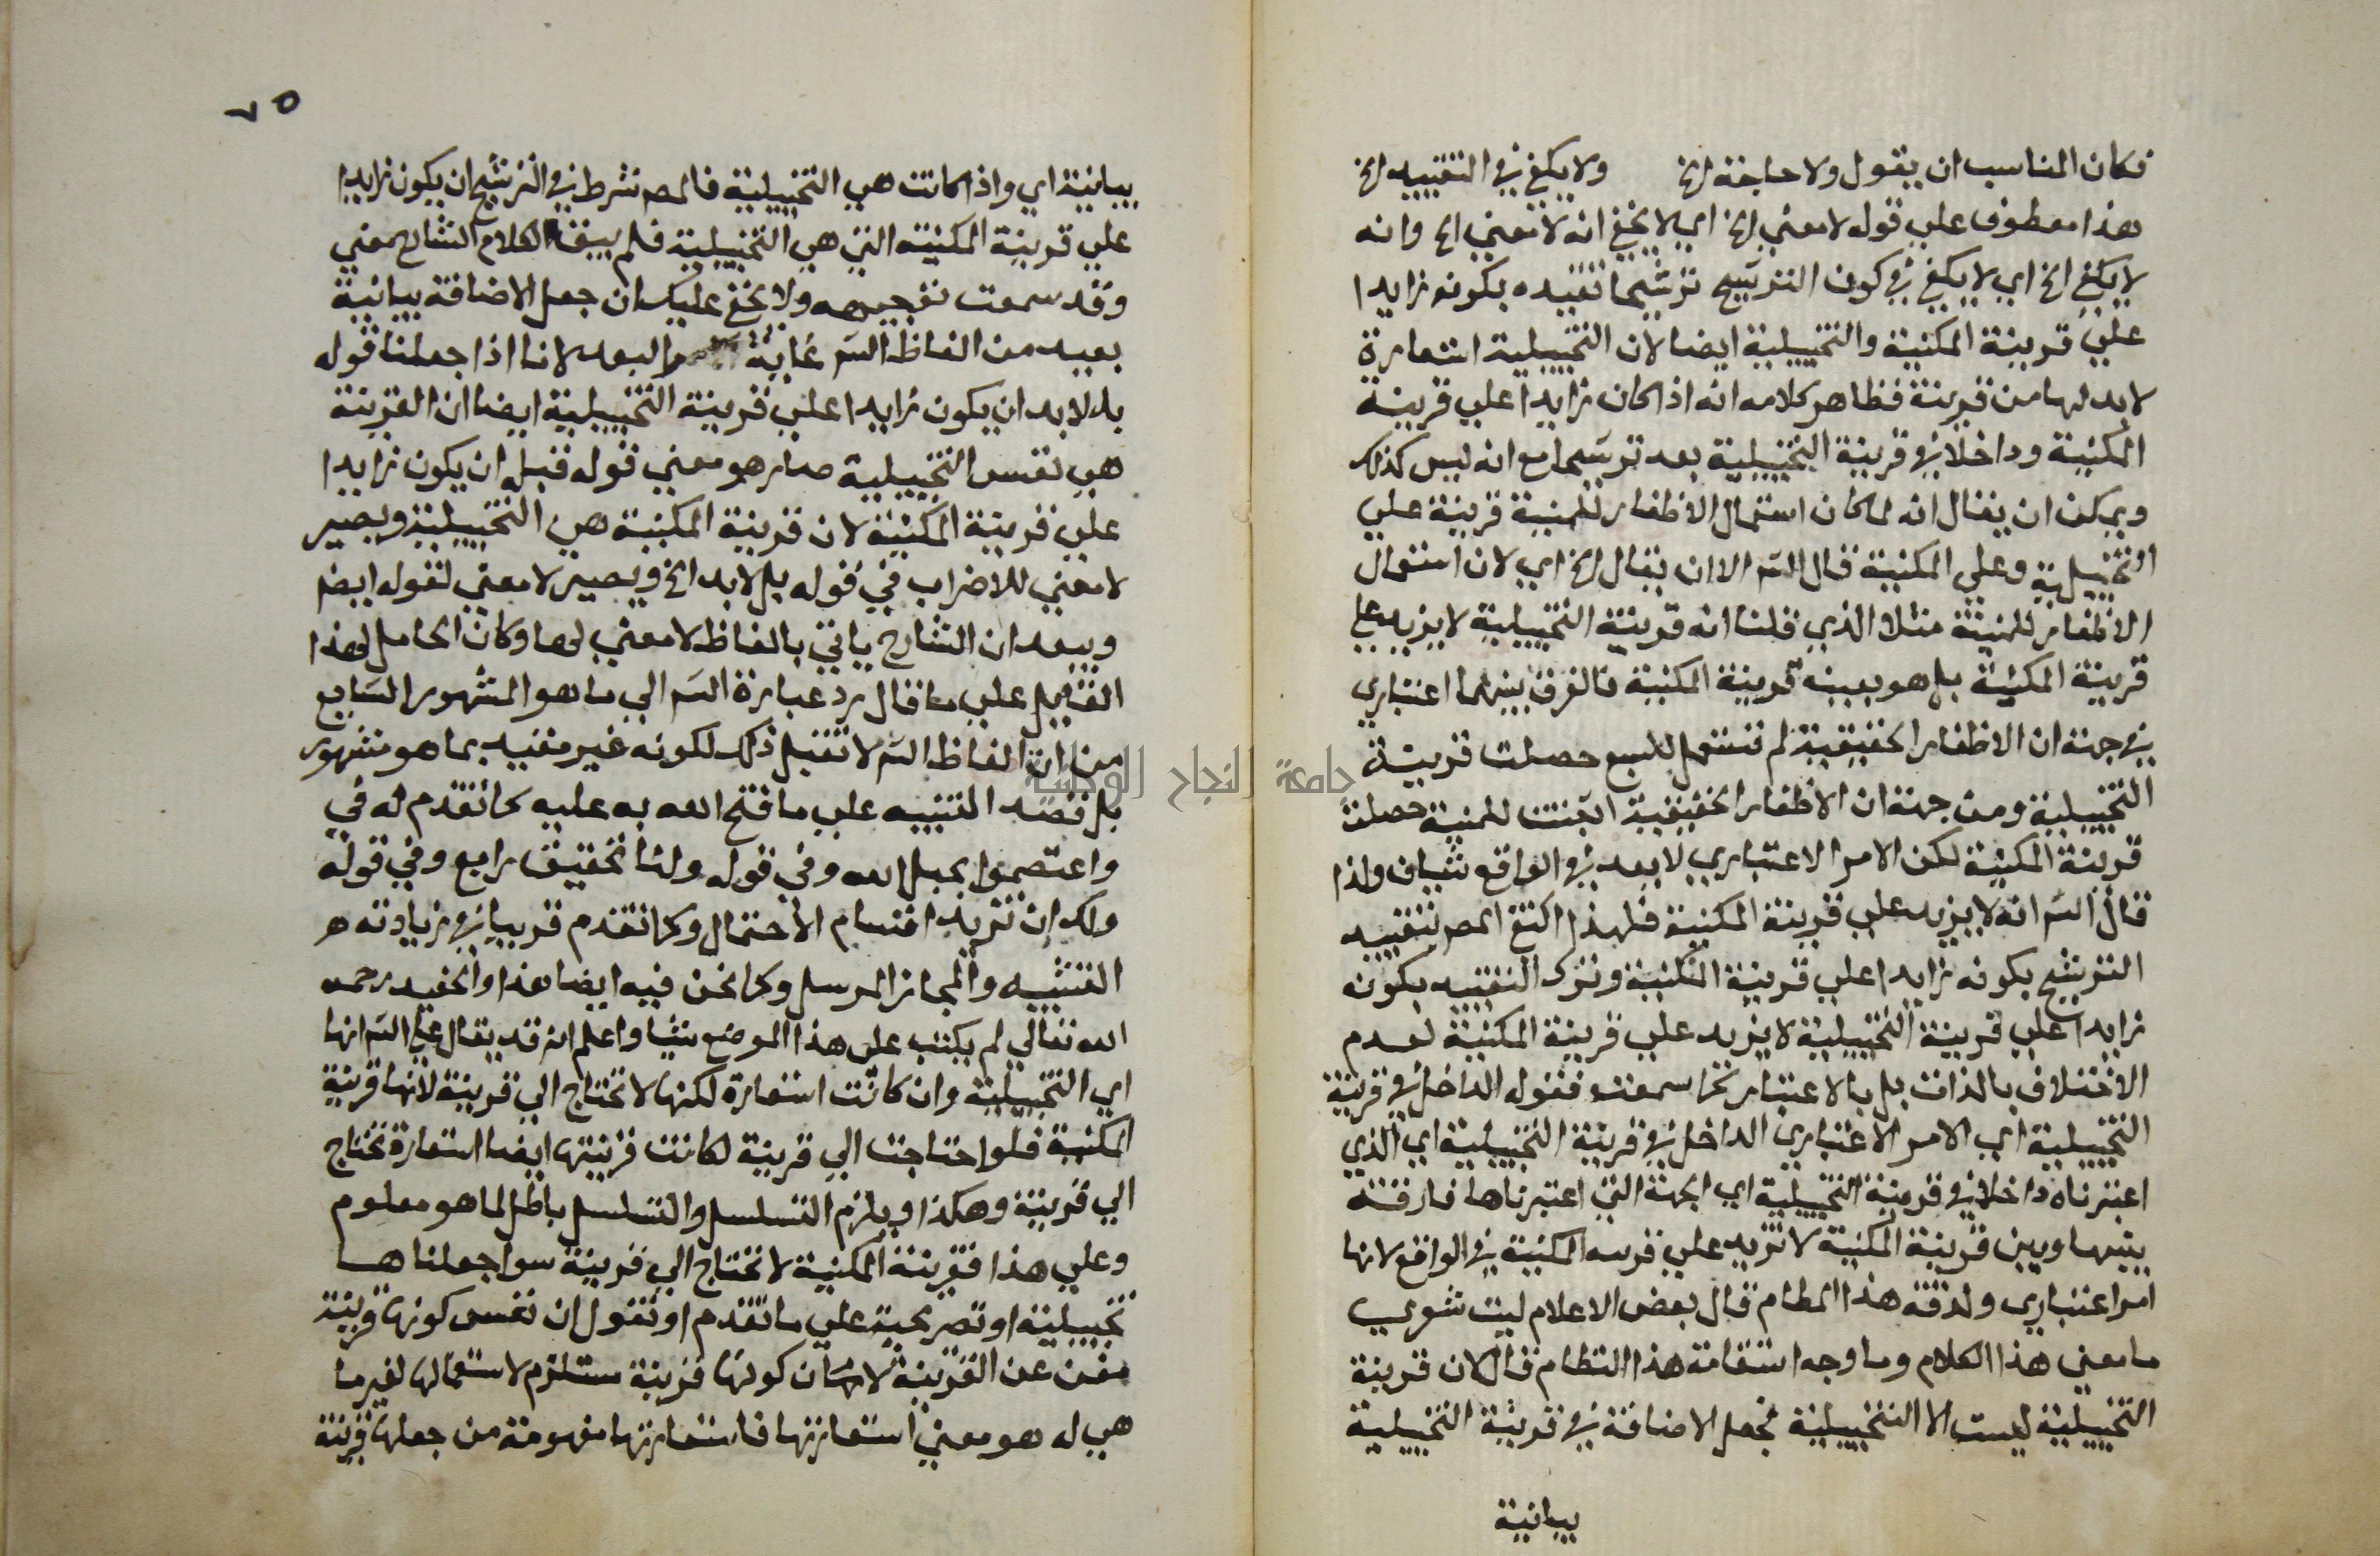 فكان المناسب ان يقول ولا حاجة الخ ولا يكفي في التقييد الخ
هذا معطوف علي قوله لا معني الخ اي لا يخفي انه لا معني الخ وانه
لا يكفي الخ اي لا يكفي في كون الترشيح ترشيحا تقييده بكونه زايدا
علي قرينة المكنية والتخييلية ايضا لان التخييلية استعارة
لا بد لها من قرينة فظاهر كلامه انه اذا كان زايدا علي قرينة
المكنية وداخلا في قرينة التخييلية يعد ترشيحا مع انه ليس كذلك
ويمكن ان يقال انه لما كان استعمال الاظفار للمنية قرينة علي
التخييلية وعلي المكنية قال الش الا ان يقال الخ اي لان استعمال
الاظفار للمنية مثلا الذي قلنا انه قرينة التخييلية لا يزيد علي
قرينة المكنية بل هو بعينه قرينة المكنية فالفرق بينهما اعتباري
في جهة ان الاظفار الحقيقية لم تستعمل للسبع حصلت قرينة
التخييلية ومن جهة ان الاظفار الحقيقية اثبتت للمنية حصلت
قرينة المكنية لكن الامر الاعتباري لا يعد في الواقع شيان ولذا
قال الش انه لا يزيد علي قرينة المكنية فلهذا اكتفي المص بتقييد
الترشيح بكونه زايدا علي قرينة المكنية وترك التقييد بكونه
زايدا علي قرينة التخييلية لا يزيد علي قرينة المكنية لعدم
الاختلاف بالذات بل بالاعتبار كما سمعت فقوله الداخل في قرينة
التخييلية اي الامر الاعتباري الداخل في قرينة التخييلية اي الذي
اعتبرناه داخلا في قرينة التخييلية اي الجهة التي اعتبرناها فارقة
بينها وبين قرينة المكنية لا تزيد علي قرينة المكنية في الواقع لانها
امر اعتباري ولدقة هذا المقام قال بعض الاعلام ليت شعري
ما معني هذا الكلام وما وجه استقامة هذا النظام فالان قرينة
التخييلية ليست الا التخييلية فجعل الاضافة في قرينة التخييلية
بيانية
٧٥
بيانية اي واذا كانت هي التخييلية فالمص شرط في الترشيح ان يكون زايدا
علي قرينة المكنية التي هي التخييلية فلم يبق لكلام الشارح معني
وقد سمعت توجيهه ولا يخفي عليك ان جعل الاضافة بيانية
بعيد من الفاظ الش غاية البعد لانا اذا جعلنا قوله
بل لا بد ان يكون زايدا علي قرينة التخييلية ايضا ان القرينة
هي نفس التخييلية صار هو معني قوله قبل ان يكون زايدا
علي قرينة المكنية لان قرينة المكنية هي التخييلية ويصير
لا معني للاضراب في قوله بل لا بد الخ ويصير لا معني لقوله ايضا
ويبعد ان الشارح ياتي بالفاظ لا معني لها وكان الحامل لهذا
القايل علي ما قال رد عبارة الش الي ما هو المشهور الشايع
من ان الفاظ الش لا تقبل ذلك لكونه غير مقيد بما هو مشهور
بل قصد التنبيه علي ما فتح الله به عليه كما تقدم له في
واعتصموا بحبل الله وفي قوله ولنا تحقيق رابع وفي قوله
ولك ان تزيد اقسام الاحتمال وكما تقدم قريبا في زيادته
التشبيه والمجاز المرسل وكما نحن فيه ايضا هذا والحفيد رحمه
الله تعالي لم يكتب علي هذا الموضع شيا واعلم انه قد يقال علي الش انها
اي التخييلية وان كانت استعارة لكنها لا تحتاج الي قرينة لانها قرينة
المكنية فلو احتاجت الي قرينة لكانت قرينتها ايضا استعارة تحتاج
الي قرينة وهكذا ويلزم التسلسل والتسلسل باطل لما هو معلوم
وعلي هذا فقرينة المكنية لا تحتاج الي قرينة سوا جعلناها
تخييلية او تصريحية علي ما تقدم او نقول ان نفس كونها قرينة
مغن عن القرينة لان كونها قرينة مستلزم لاستعمالها لغير ما
هي له هو معني استعارتها فاستعارتها مفهومة من جعلها قرينة
جامعة النجاح الوطنية